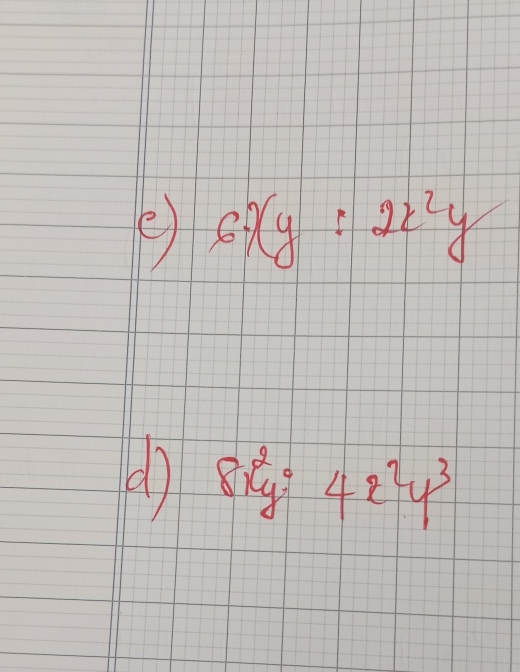 c) 6xy : 2x²y
d) 8x²y : 4x²y³